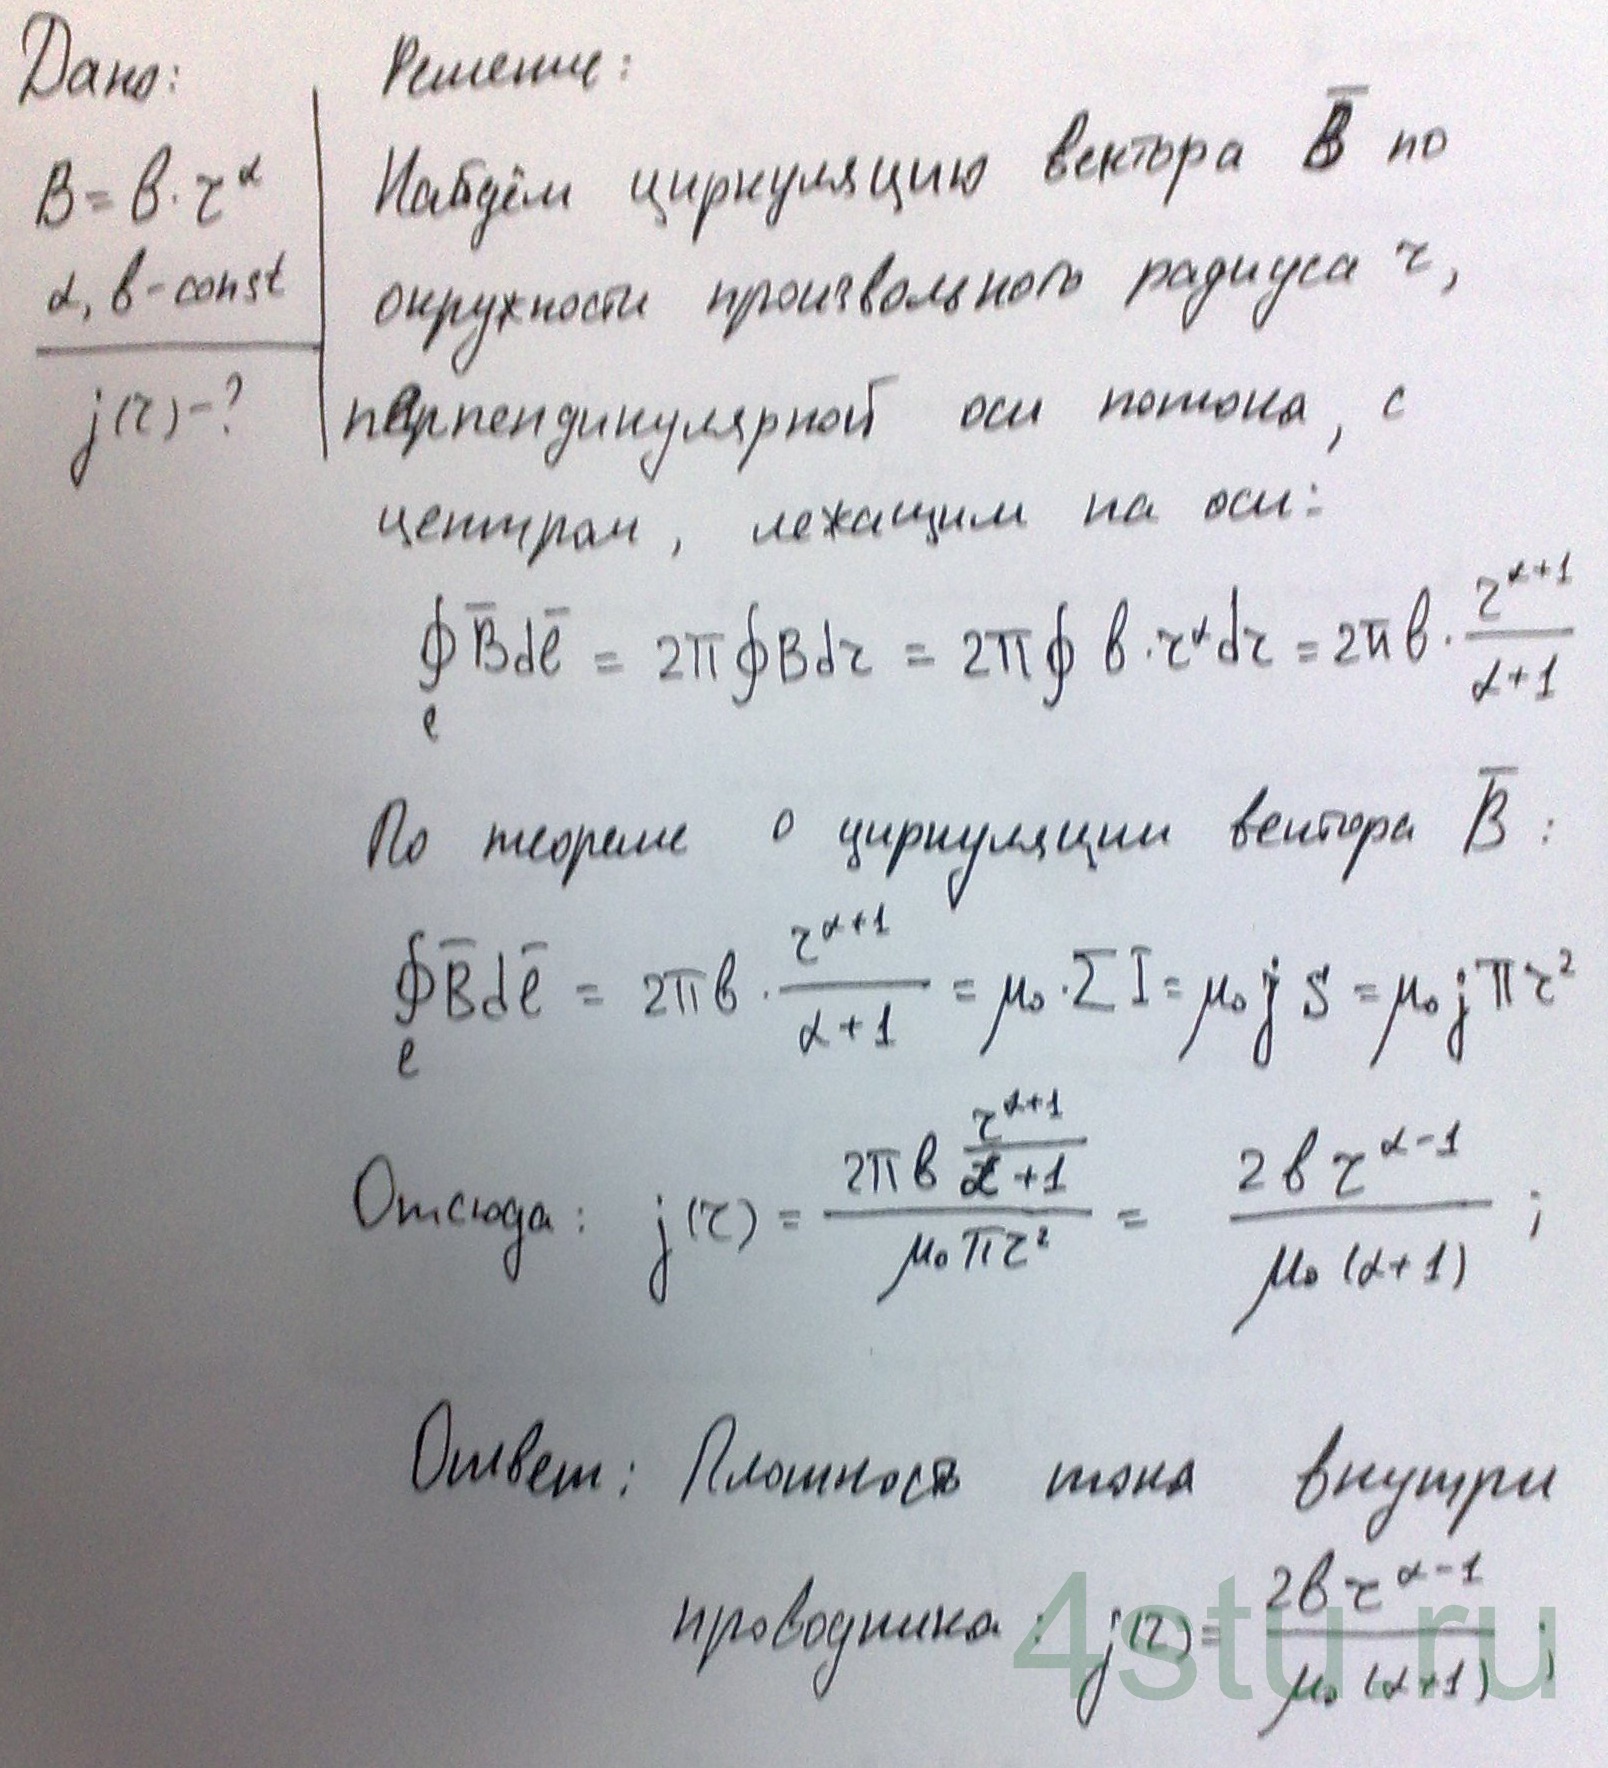 Дано:
B = b · r^α
α, b - const
j(r) - ?
Решение:
Найдём циркуляцию вектора B̅ по
окружности произвольного радиуса r,
перпендикулярной оси потока, с
центром, лежащим на оси:
∮_ℓ B̅dℓ̅ = 2π∮Bdr = 2π∮ b · r^α dr = 2πb · r^(α+1)/(α+1)
По теореме о циркуляции вектора B̅ :
∮_ℓ B̅dℓ̅ = 2πb · r^(α+1)/(α+1) = μ₀ · ΣI = μ₀ j S = μ₀ j π r²
Отсюда: j(r) = (2πb r^(α+1)/(α+1))/(μ₀ π r²) = 2b r^(α-1)/(μ₀ (α+1)) ;
Ответ: Плотность тока внутри
проводника : j(r) = 2b r^(α-1)/(μ₀ (α+1)) ;
4stu.ru